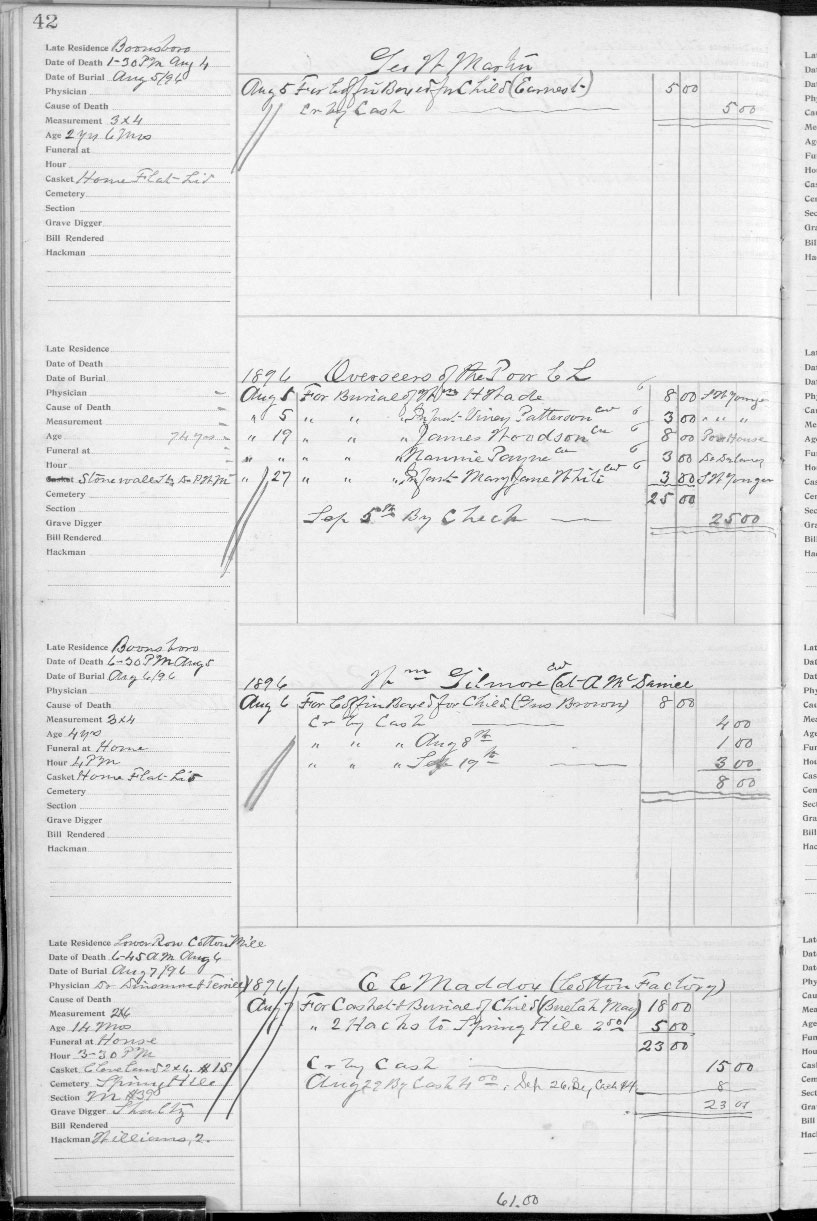 42
Late Residence Boonsboro
Date of Death 1-30 PM Aug 4
Date of Burial Aug 5/96
Physician
Cause of Death
Measurement 3x4
Age 2 yrs 6 Mos
Funeral at
Hour
Casket Home Flat-Lid
Cemetery
Section
Grave Digger
Bill Rendered
Hackman
Geo W Martin
Aug 5 For Coffin Boxed for Child (Earnest) 5 00
Cr by Cash 5 00
Late Residence
Date of Death
Date of Burial
Physician
Cause of Death
Measurement
Age 74 yrs
Funeral at
Hour
Stonewall St
Cemetery
Section
Grave Digger
Bill Rendered
Hackman
1896 Overseers of the Poor C L
Aug 5 For Burial of Wm H Wade 6 8 00 S W Younger
" 5 " " " Infant Viney Patterson Cod 6 3 00 " " "
" 19 " " " James Woodson 6 8 00 Poor House
" " " " " Nannie Payne 6 3 00 Do Delaney
" 27 " " " Infant Mary Jane White 6 3 00 S W Younger
25 00
Sep 5th By Check 25 00
Late Residence Boonsboro
Date of Death 6-30 PM Aug 5
Date of Burial Aug 6/96
Physician
Cause of Death
Measurement 3x4
Age 4 yrs
Funeral at Home
Hour 4 PM
Casket Home Flat-Lid
Cemetery
Section
Grave Digger
Bill Rendered
Hackman
1896 Wm Gilmore (at A McDaniel
Aug 6 For Coffin Boxed for Child (Gus Brown) 8 00
Cr by Cash 4 00
" " " Aug 8th 1 00
" " " Sep 19th 3 00
8 00
Late Residence Lower Row Cotton Mill
Date of Death 6-45 AM Aug 6
Date of Burial Aug 7/96
Physician Dr Dinsmore & Terrell
Cause of Death
Measurement 2x6
Age 14 Mos
Funeral at House
Hour 3-30 PM
Casket Cleveland 2x6. #15
Cemetery Spring Hill
Section M #39
Grave Digger Shultz
Bill Rendered
Hackman Williams, 2.
1896 C C Maddox (Cotton Factory)
Aug 7 For Casket & Burial of Child (Buelah May) 18 00
" 2 Hacks to Spring Hill 2 50 5 00
23 00
Cr by Cash 15 00
Aug 29 By Cash 4 00, Sep 26. By Cash $4 8
23 00
61.00